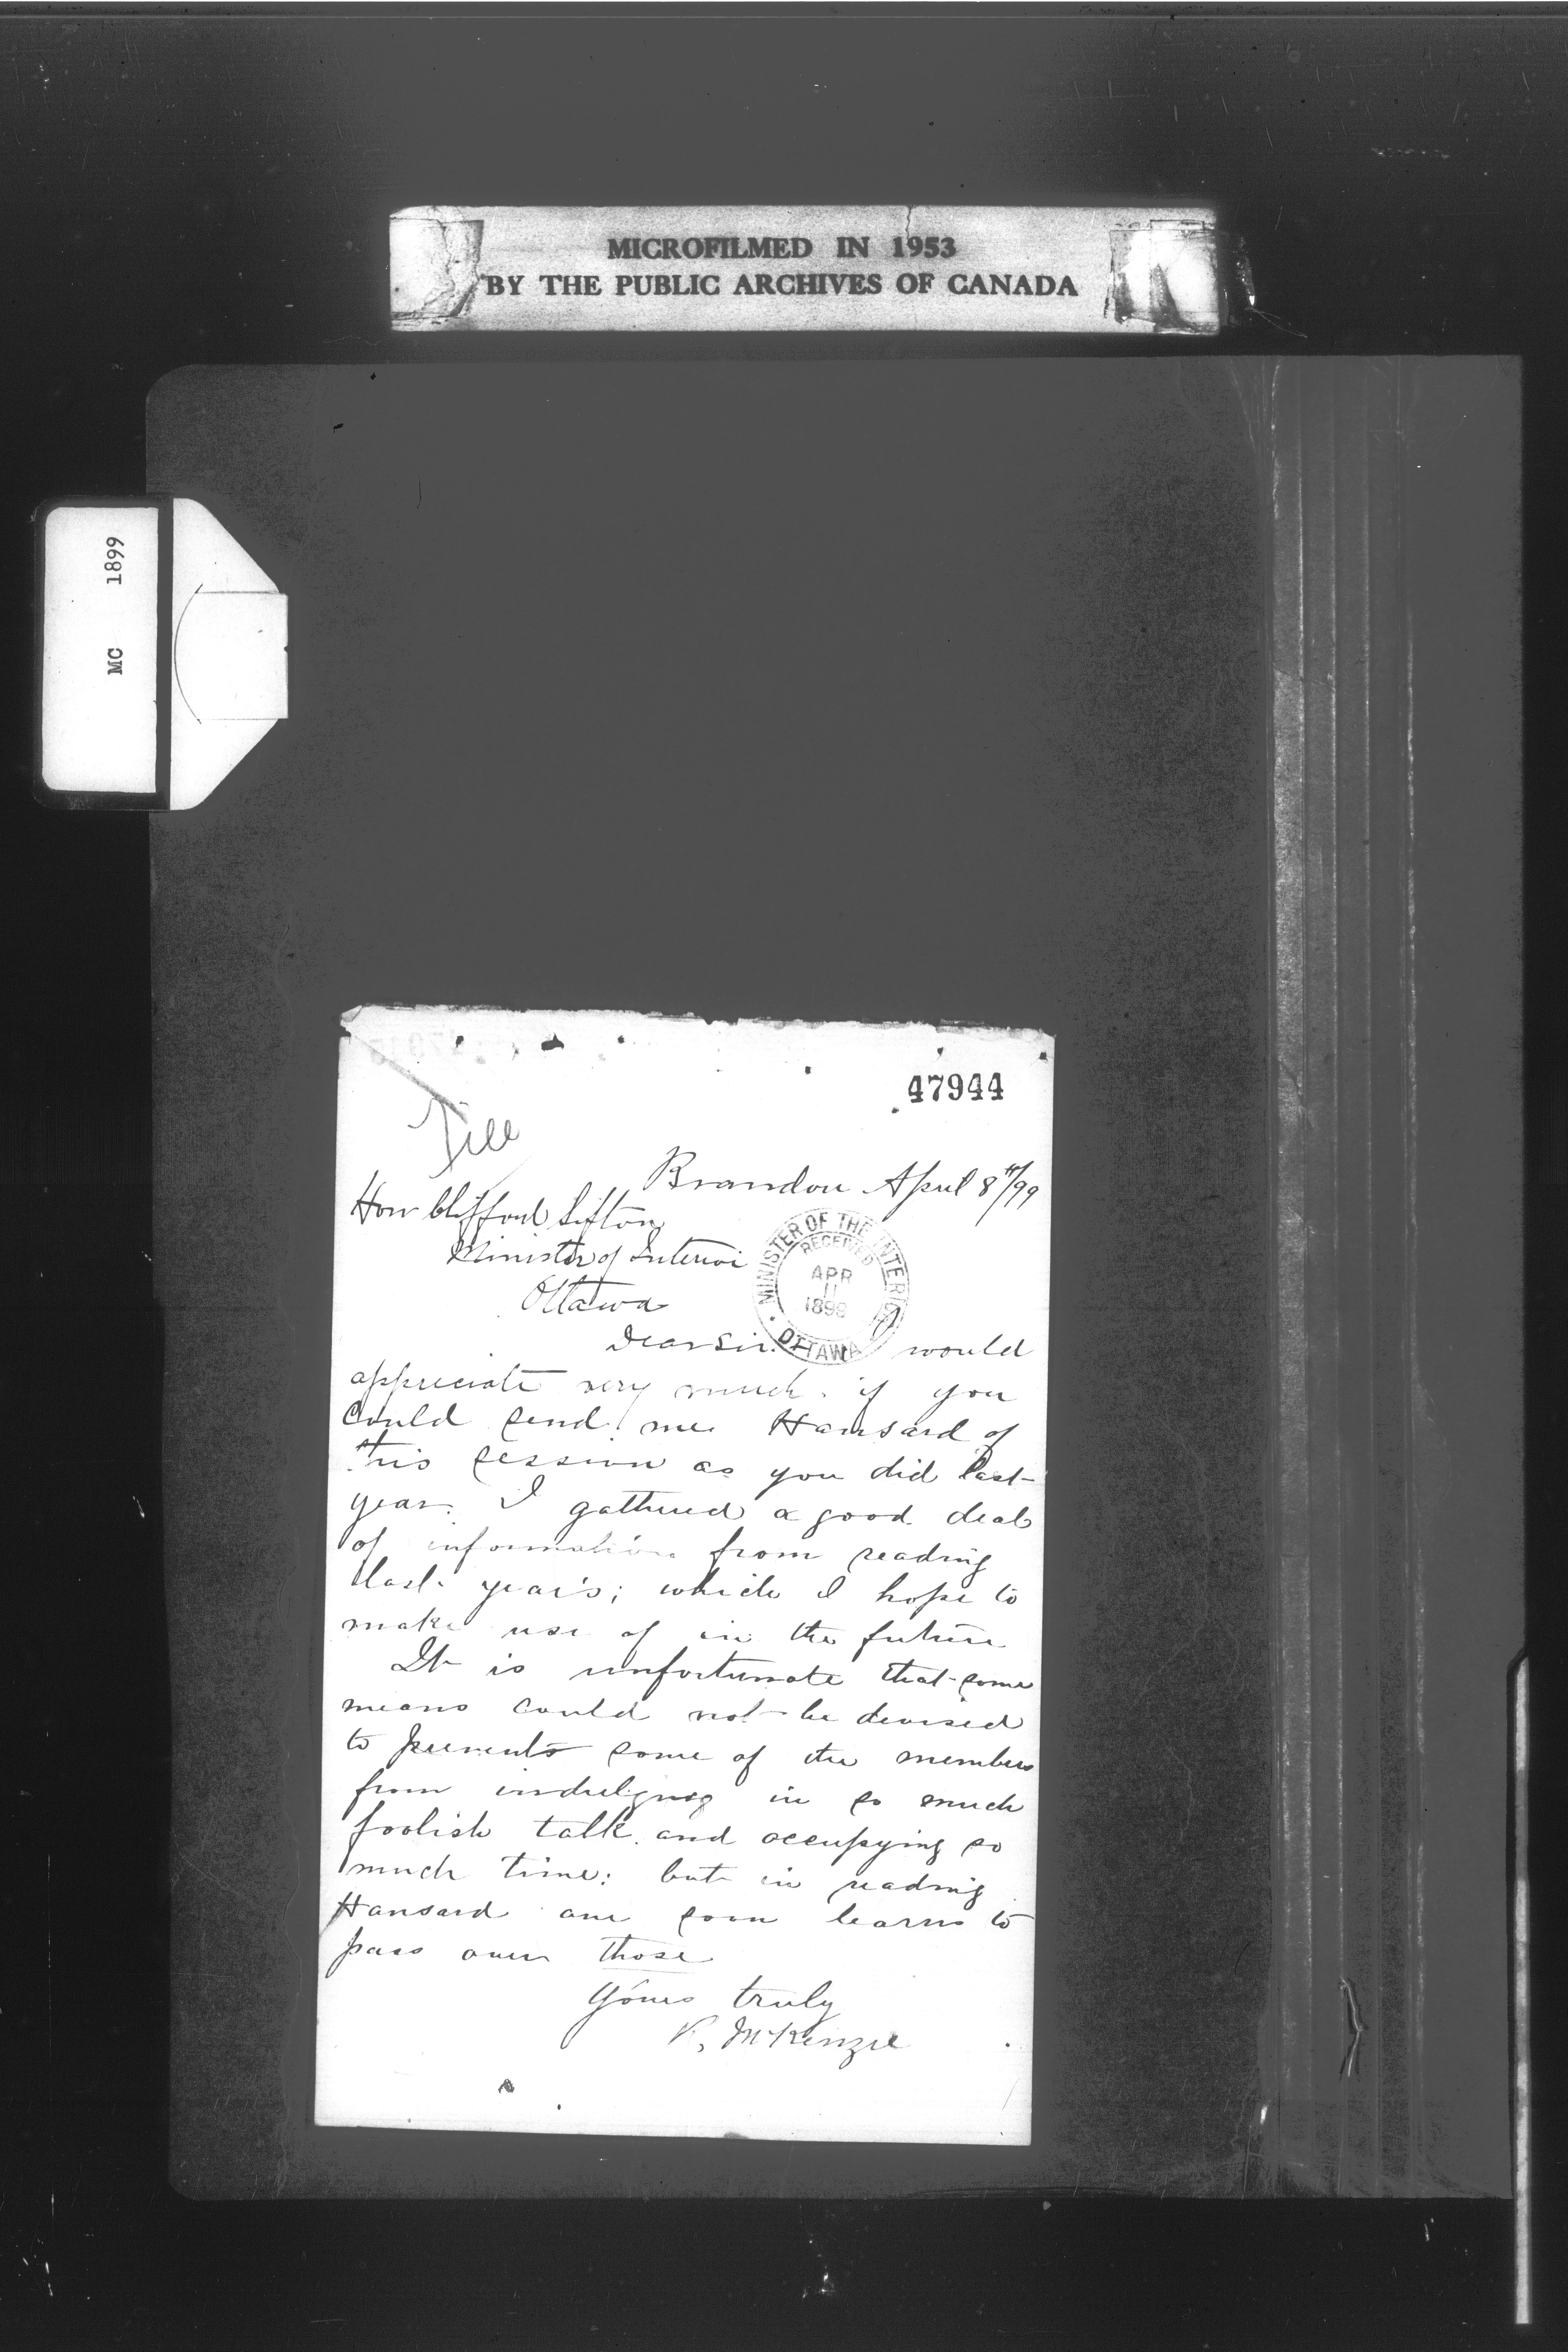 MICROFILMED IN 1953
BY THE PUBLIC ARCHIVES OF CANADA
MC 1899
47944
File
Brandon April 8th/99
Hon Clifford Sifton
Minister of Interior
Ottawa
MINISTER OF THE INTERIOR
RECEIVED
APR
11
1899
OTTAWA
Dear Sir. I would
appreciate very much if you
could send me Hansard of
this session as you did last
year. I gathered a good deal
of information from reading
last year's; which I hope to
make use of in the future
It is unfortunate that some
means could not be devised
to prevent some of the members
from indulging in so much
foolish talk and occupying so
much time: but in reading
Hansard one soon learns to
pass over those
Yours truly
K. McKenzie